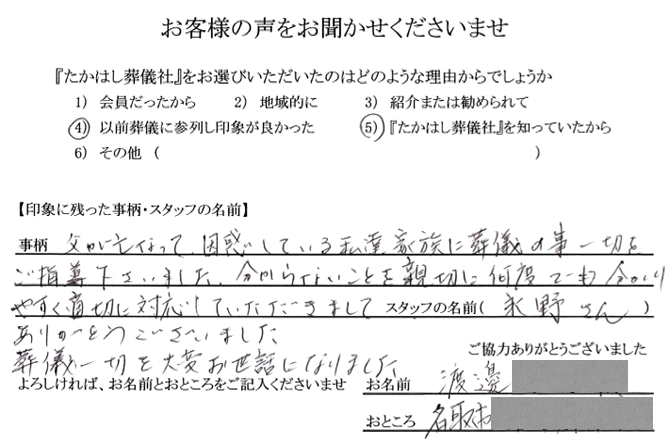 お客様の声をお聞かせくださいませ
『たかはし葬儀社』をお選びいただいたのはどのような理由からでしょうか
1） 会員だったから 2） 地域的に 3） 紹介または勧められて
4） 以前葬儀に参列し印象が良かった 5） 『たかはし葬儀社』を知っていたから
6） その他 （ ）
【印象に残った事柄・スタッフの名前】
事柄 父が亡なって、困惑している私達家族に葬儀の事一切を
ご指導下さいました。分からないことを親切に何度でも分かり
やすく適切に対応していただきまして スタッフの名前（ 氷野さん ）
ありがとうございました
葬儀一切を大変お世話になりました
ご協力ありがとうございました
よろしければ、お名前とおところをご記入くださいませ お名前 渡邊
おところ 名取市